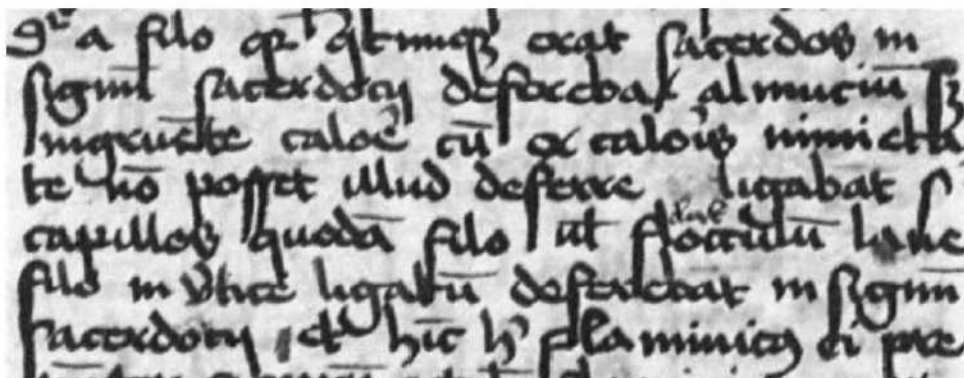 a filo erat sacerdos in
signu̅ sacerdotij deferebat almuciu̅ sʒ
ingrue̅te calore cu̅ ex caloris nimieta
te no̅ posset illud deferre ligabat s
capillos quoda̅ filo ul̅ flocculu̅ lane
filo in v̓tice ligatu̅ deferebat in signu̅
sacerdotij et hi̅c h̓ flamineus